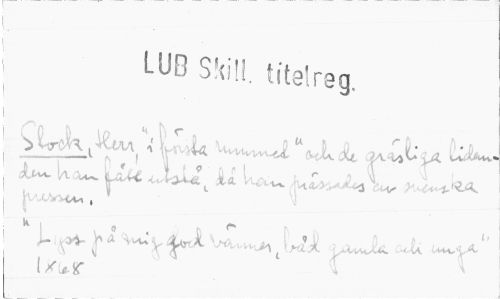 LUB Skill. titelreg.
Slock, Herr, "i första rummet" och de gräsliga lidan-
den han fått utstå, då han prässades av svenska
pressen.
"Lyss på mig god vänner, båd gamla och unga"
1868